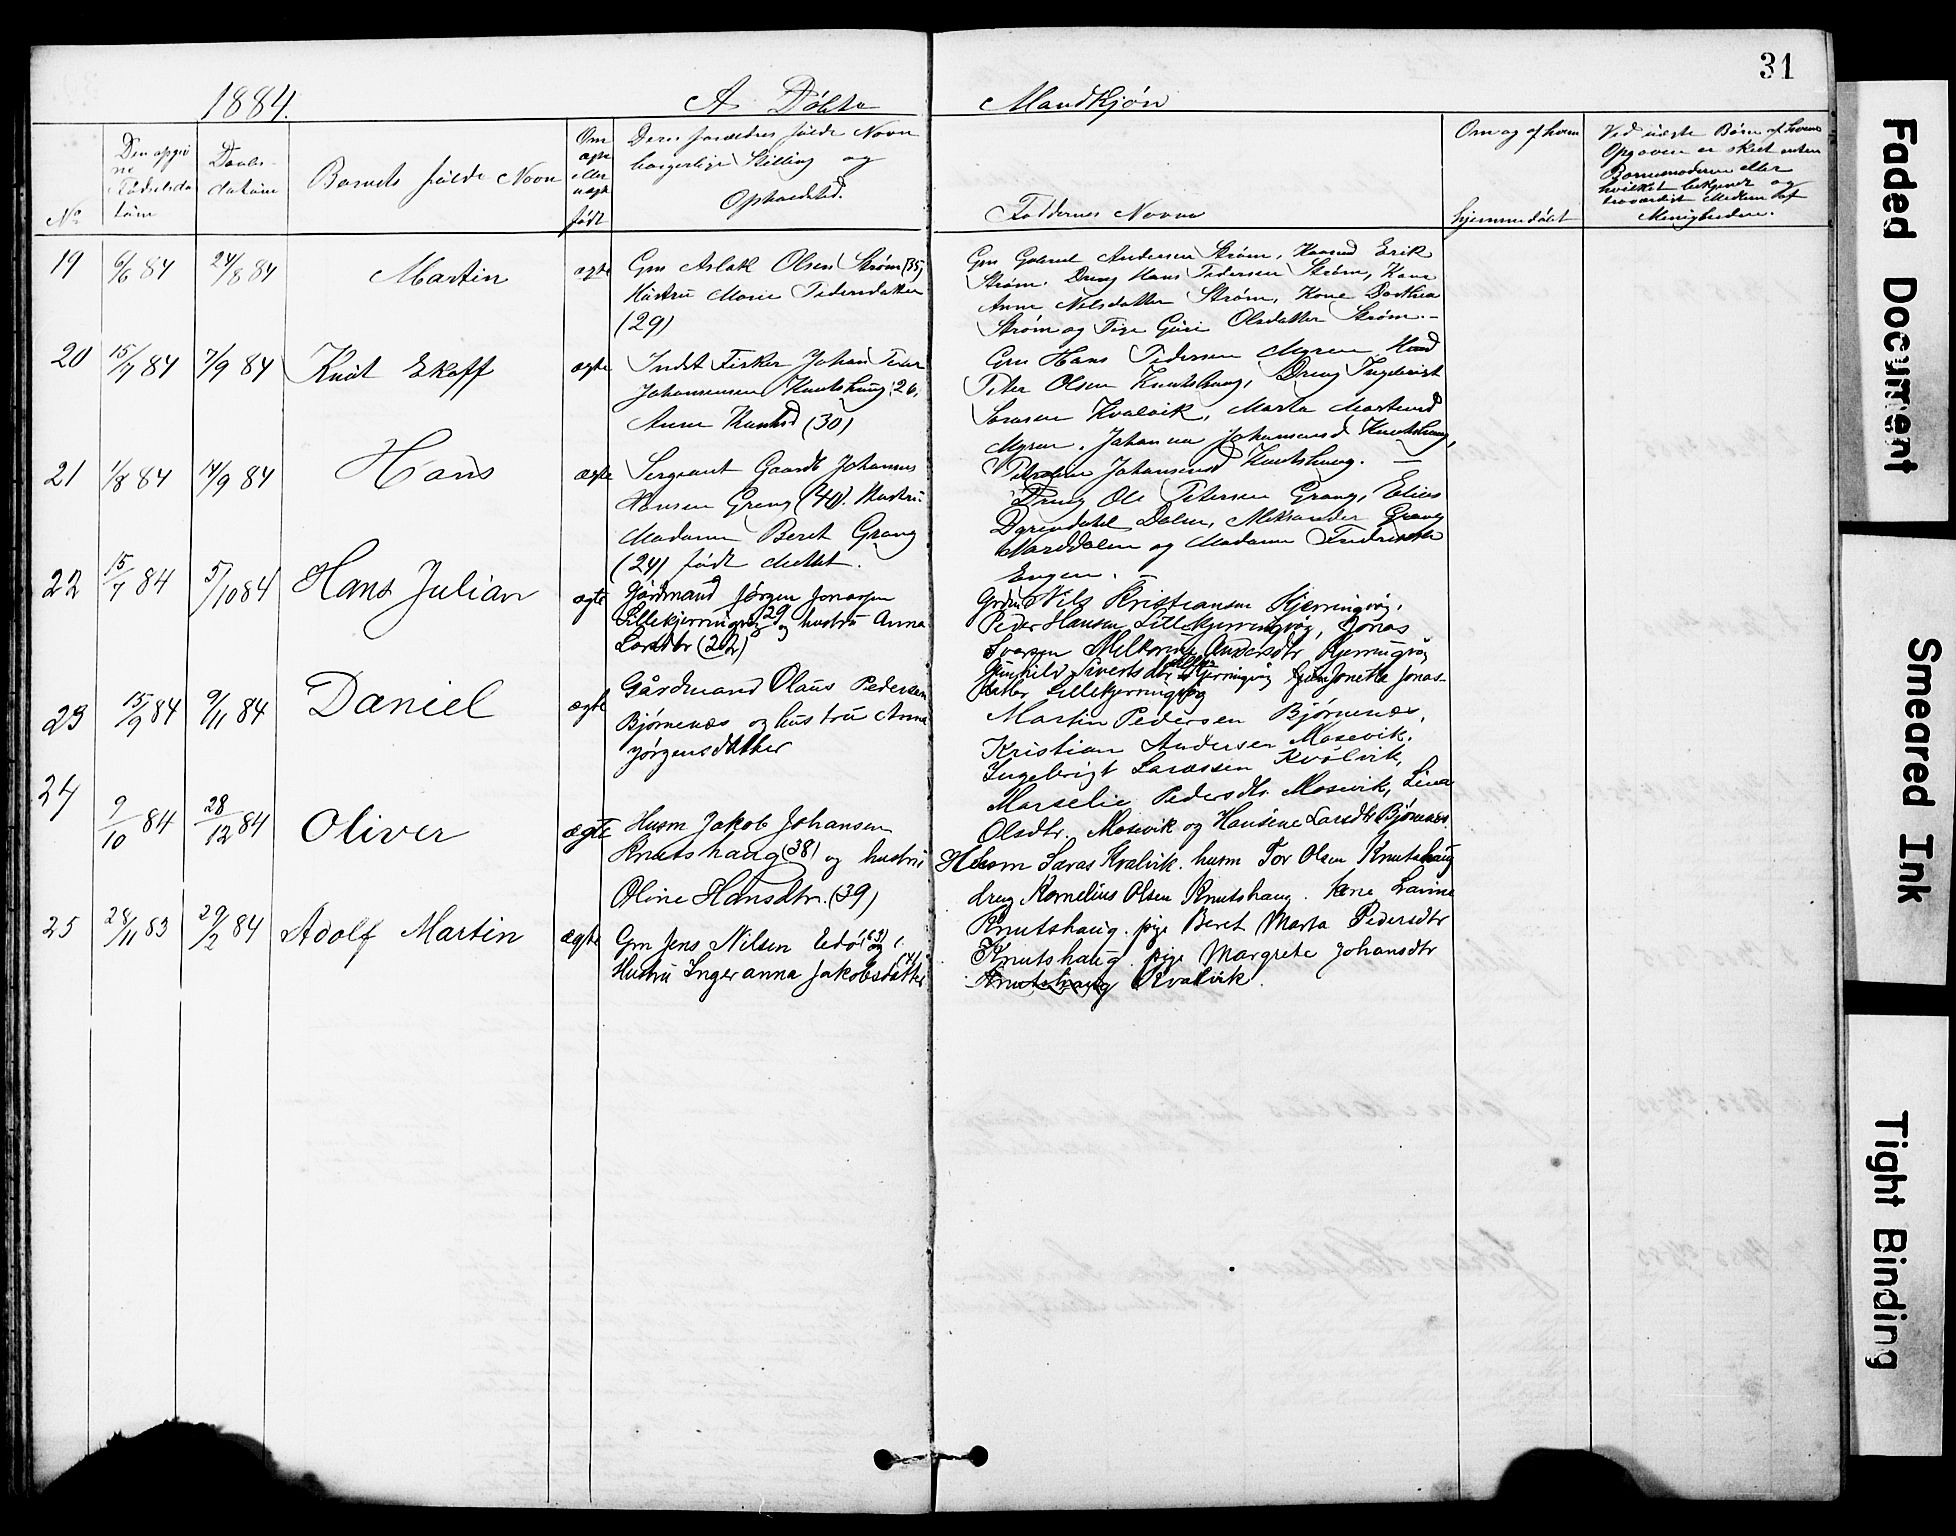 31
1884.
A Döbte
Mandkjön
No
Den opgivne Fødselsdatum
Daabsdatum
Barnets fulde Navn
Om ægte eller uægte født
Deres Forældres fulde Navn
borgerlige Stilling og
Opholdsted.
Faddernes Navne
Om og af hvem
hjemmedøbt
Ved uægte Børn af hvem
Opgaven er skeet enten
Barnemoderen eller
hvilket bekjendt og
troværdigt Medlem af
Menigheden.
19 6/6 84 24/8 84 Martin ægte
Gm Aslak Olsen Strøm (35)
Hustru Marie Pedersdatter
(29)
Gm Gabriel Andersen Strøm, Erik
Strøm. Dreng Hans Pedersen Strøm, Kone
Anne Nilsdatter Strøm, Kone Dorthea
Strøm og Pige Guri Olsdatter Strøm.-
20 15/7 84 7/9 84 Knut Ekoff ægte
Indst Fisker Johan Peter
Johannesen Knutshaug (26,
Anne (30)
Gm Hans Pedersen Myren
Peter Olsen Knutshaug, Dreng Ingebrigt
Larsen Kvalvik, Marta
Myren, Johanna Johannesd Knutshaug,
Johansend Knutshaug. —
21 1/8 84 14/9 84 Hans ægte
Sergeant Gaardb Johannes
Hansen Grang (40). Hustru
Madame Beret Grang
(24) født
Dreng Ole Petersen Grang, Elias
Dalen, Aleksander Grang
Norddalen og Madame Fredrikke
Engen. —
22 15/7 84 5/10 84 Hans Julian ægte
Gårdmand Jørgen Jonasen
Lillekjerringvåg 29 og hustru Anna
Larsdtr (22)
Grdm Nils Kristiansen Kjerringvåg,
Peder Hansen Lillekjerringvåg, Jonas
Ivarsen Melkorine Andersdtr Kjerringvåg
Gunhild Sivertsdtr Kjerringvåg Jonetta Jonas-
datter Lillekjerringvåg
23 15/9 84 9/11 84 Daniel ægte
Gårdmand Olaus Pedersen
Bjørnenæs og hustru Anna
Jørgensdatter
Martin Pedersen Bjørnenæs,
Kristian Andersen Mosevik,
Ingebrigt Larassen Kvålvik,
Marselie Pedersdtr. Mosevik, Lina
Olsdtr. Mosevik og Hansine Larsdtr Bjørnenæs.
24 9/10 84 28/12 84 Oliver ægte
Husm Jakob Johansen
Knutshaug (38) og hustru
Oline Hansdtr. (39)
Husm Laras Kvalvik. husm Tor Olsen Knutshaug
dreng Kornelius Olsen Knutshaug. kone Lavine
Knutshaug. pige Beret Marta Pedersdtr
Knutshaug. pige Margrete Johansdtr
Knutshaug Kvalvik.
25 28/11 83 29/2 84 Adolf Martin ægte
Gm Jens Nilsen Edø (63) og
Hustru Inger anna Jakobsdatter (41)
Faded Document
Smeared Ink
Tight Binding